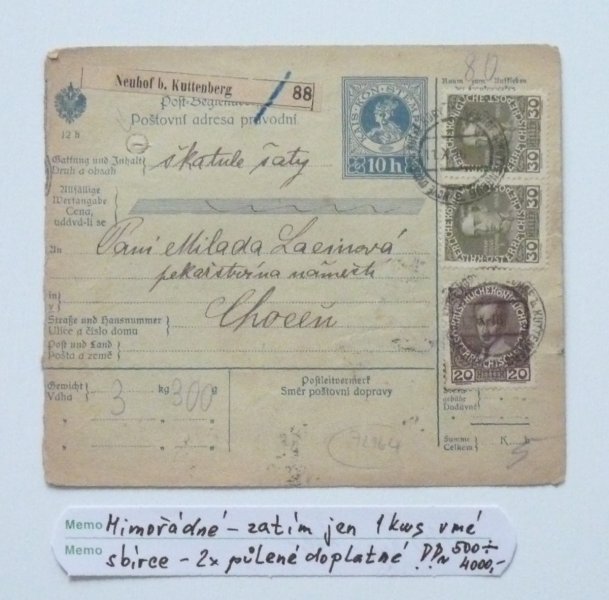 80
Neuhof b. Kuttenberg 88
Post-Begleit
KAIS·KÖN·STEMPEL
Poštovní adresa průvodní
12 h
10 h
Gattung und Inhalt
Druh a obsah
škatule šaty
Allfällige
Wertangabe
Cena,
udává-li se
An
Paní Milada Lacinová
pekařství na náměstí
in
v
Choceň
Straße und Hausnummer
Ulice a číslo domu
Post und Land
Pošta a země
30 30
30 30
20 HELLER 20
Gewicht
Váha
3 kg 300 g
Postleitvermerk
Směr poštovní dopravy
Dodávné
72964
Summe
Celkem
K h
5
Memo Mimořádné – zatím jen 1 kus v mé
Memo sbírce – 2x půlené doplatné PP~ 500÷
4000,-